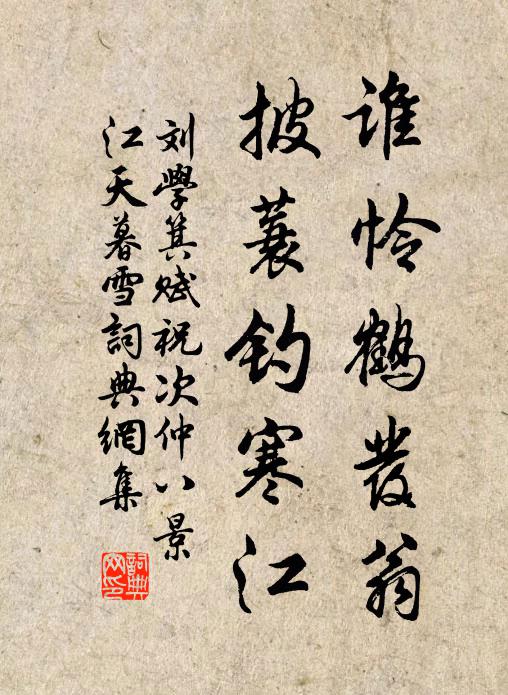 谁怜鹤发翁
披蓑钓寒江
刘學箕赋祝次仲八景
江天暮雪詞典網集
詞典
网印